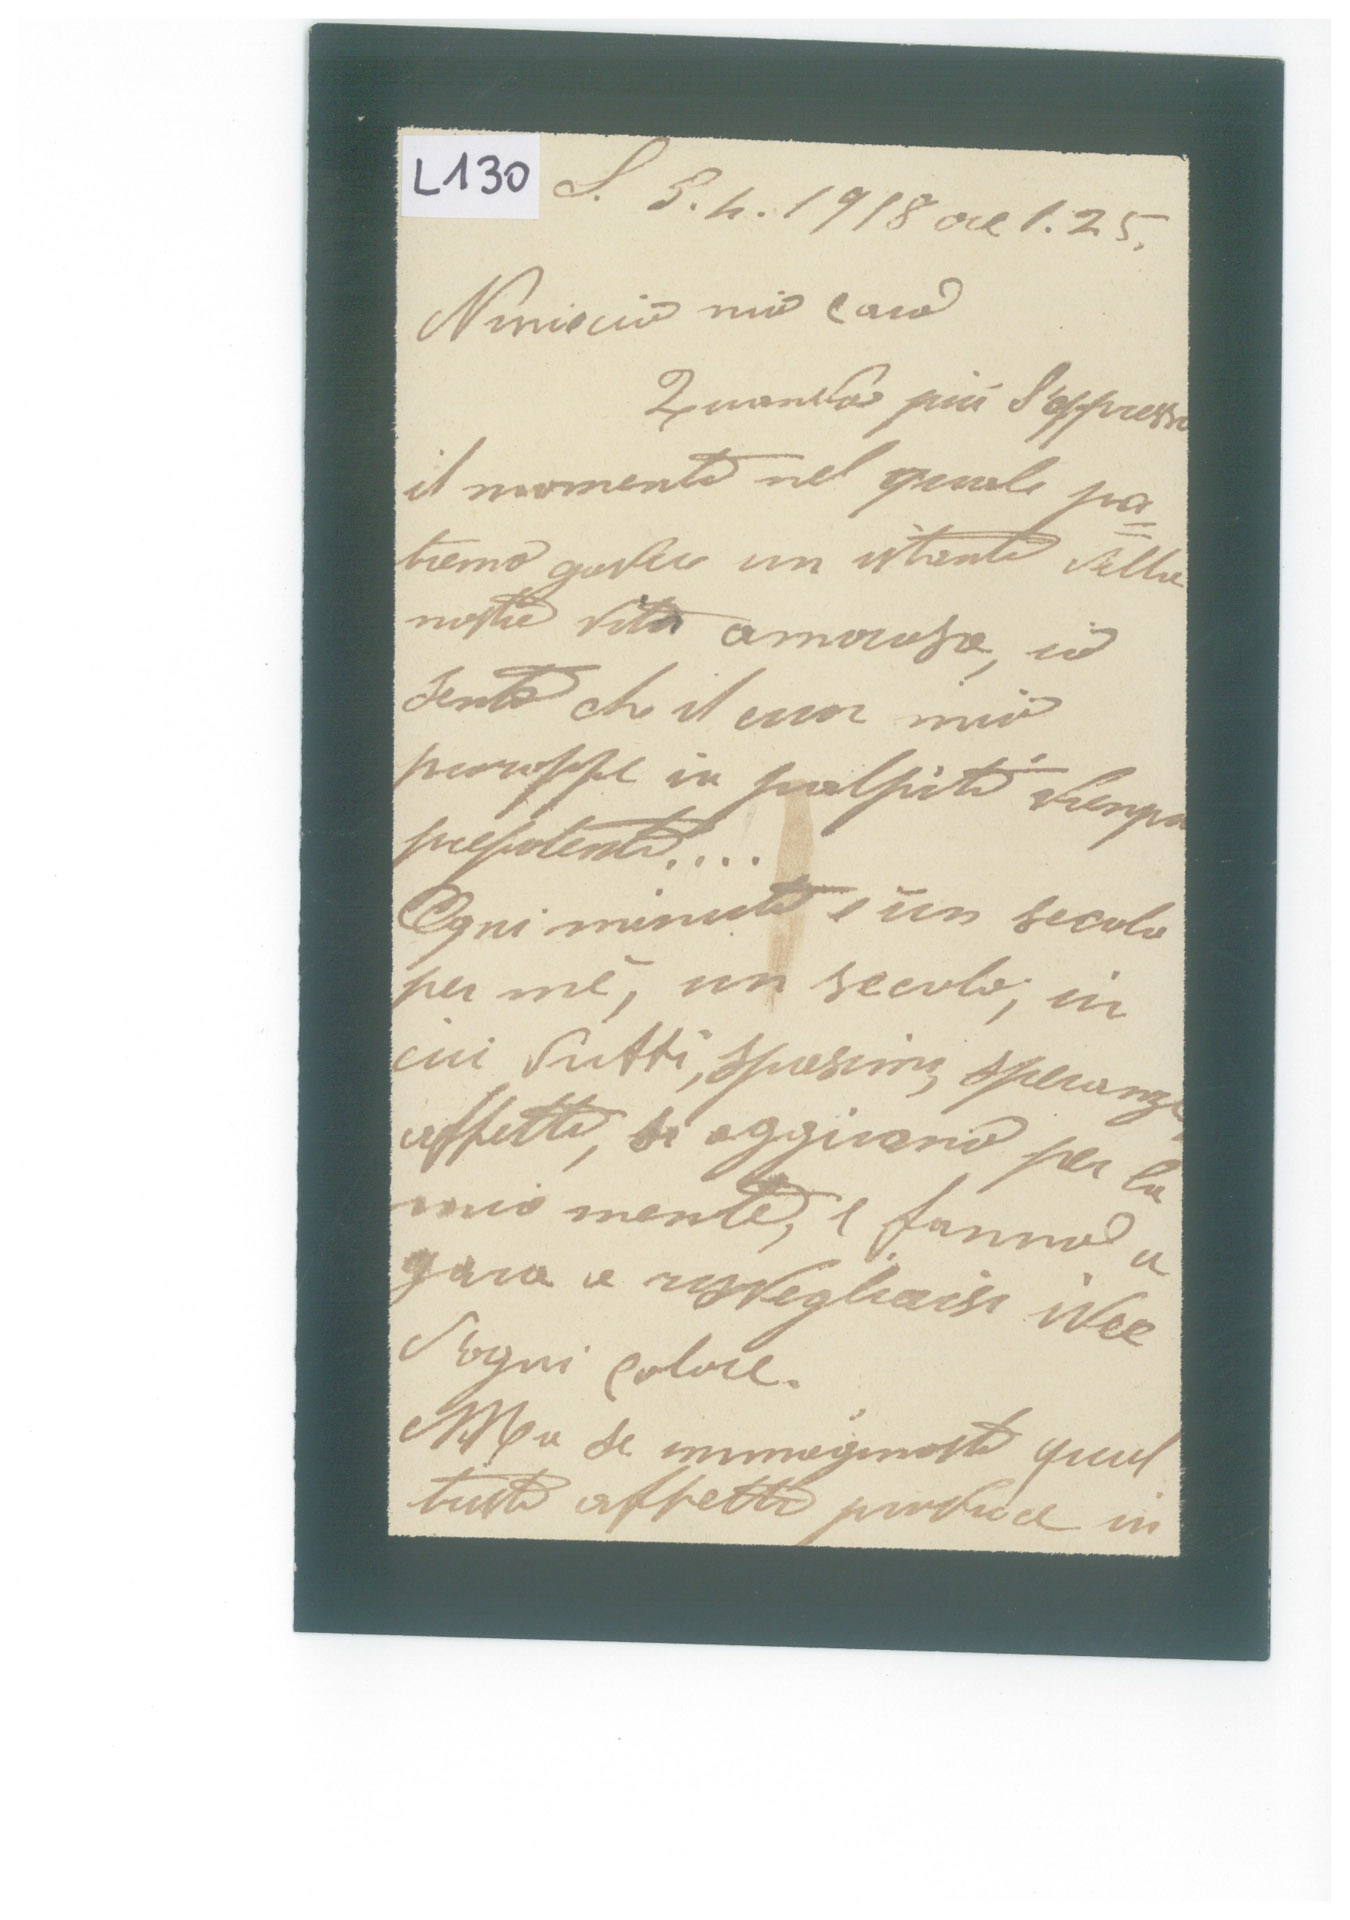 L130
S. 3.4.1918 ore 1.25.
Niniscio mio caro
Quando più s'appressa
il momento nel quale pa=
tremo godere un istante della
nostra vita amorosa, io
sento che il cuor mio
proroppe in palpito
prepotente....
Ogni minuto è un secolo
per mè, un secolo, in
cui tutti, spasimi, speranze,
affetti, si aggirano per la
mia mente, e fanno a
gara a risvegliarsi idee
d'ogni colore.
Ma se immaginasti qual
tristo affetto produce in